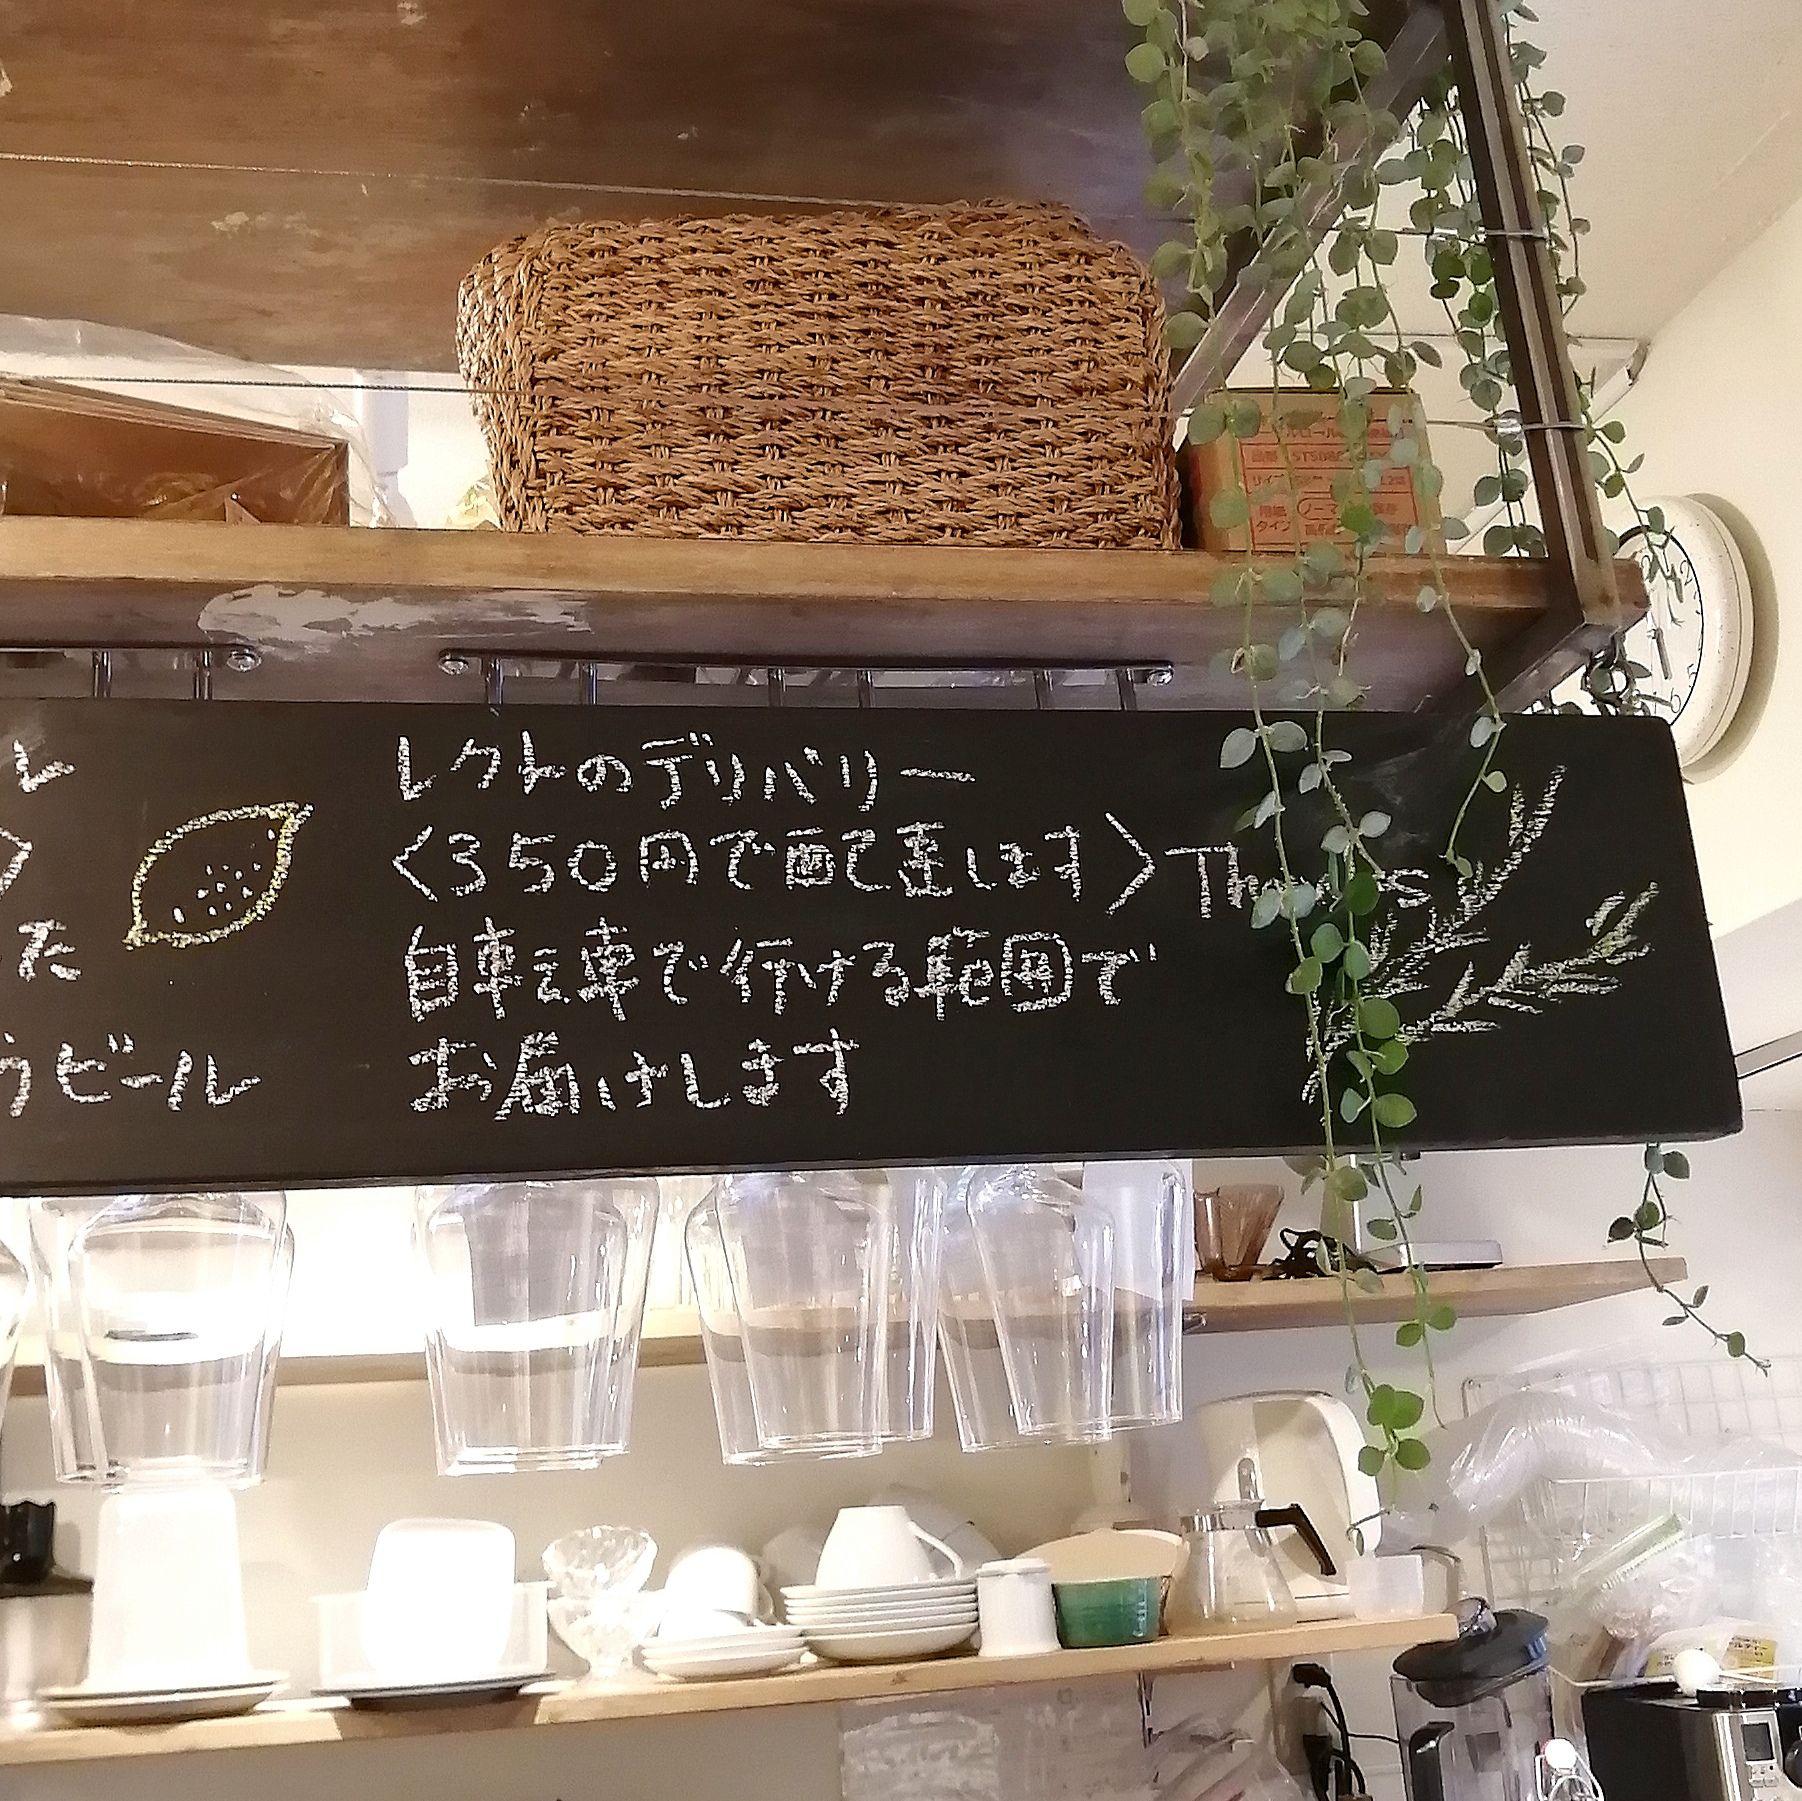 レ
レクトのデリバリー
〈350円で配達します〉
自転車で行ける範囲で
お届けします
た
うビール
用紙
タイン